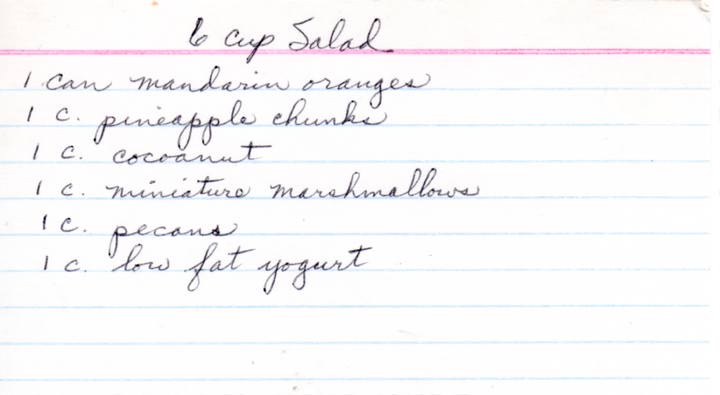 6 cup Salad
1 can mandarin oranges
1 c. pineapple chunks
1 c. cocoanut
1 c. miniature marshmallows
1 c. pecans
1 c. low fat yogurt